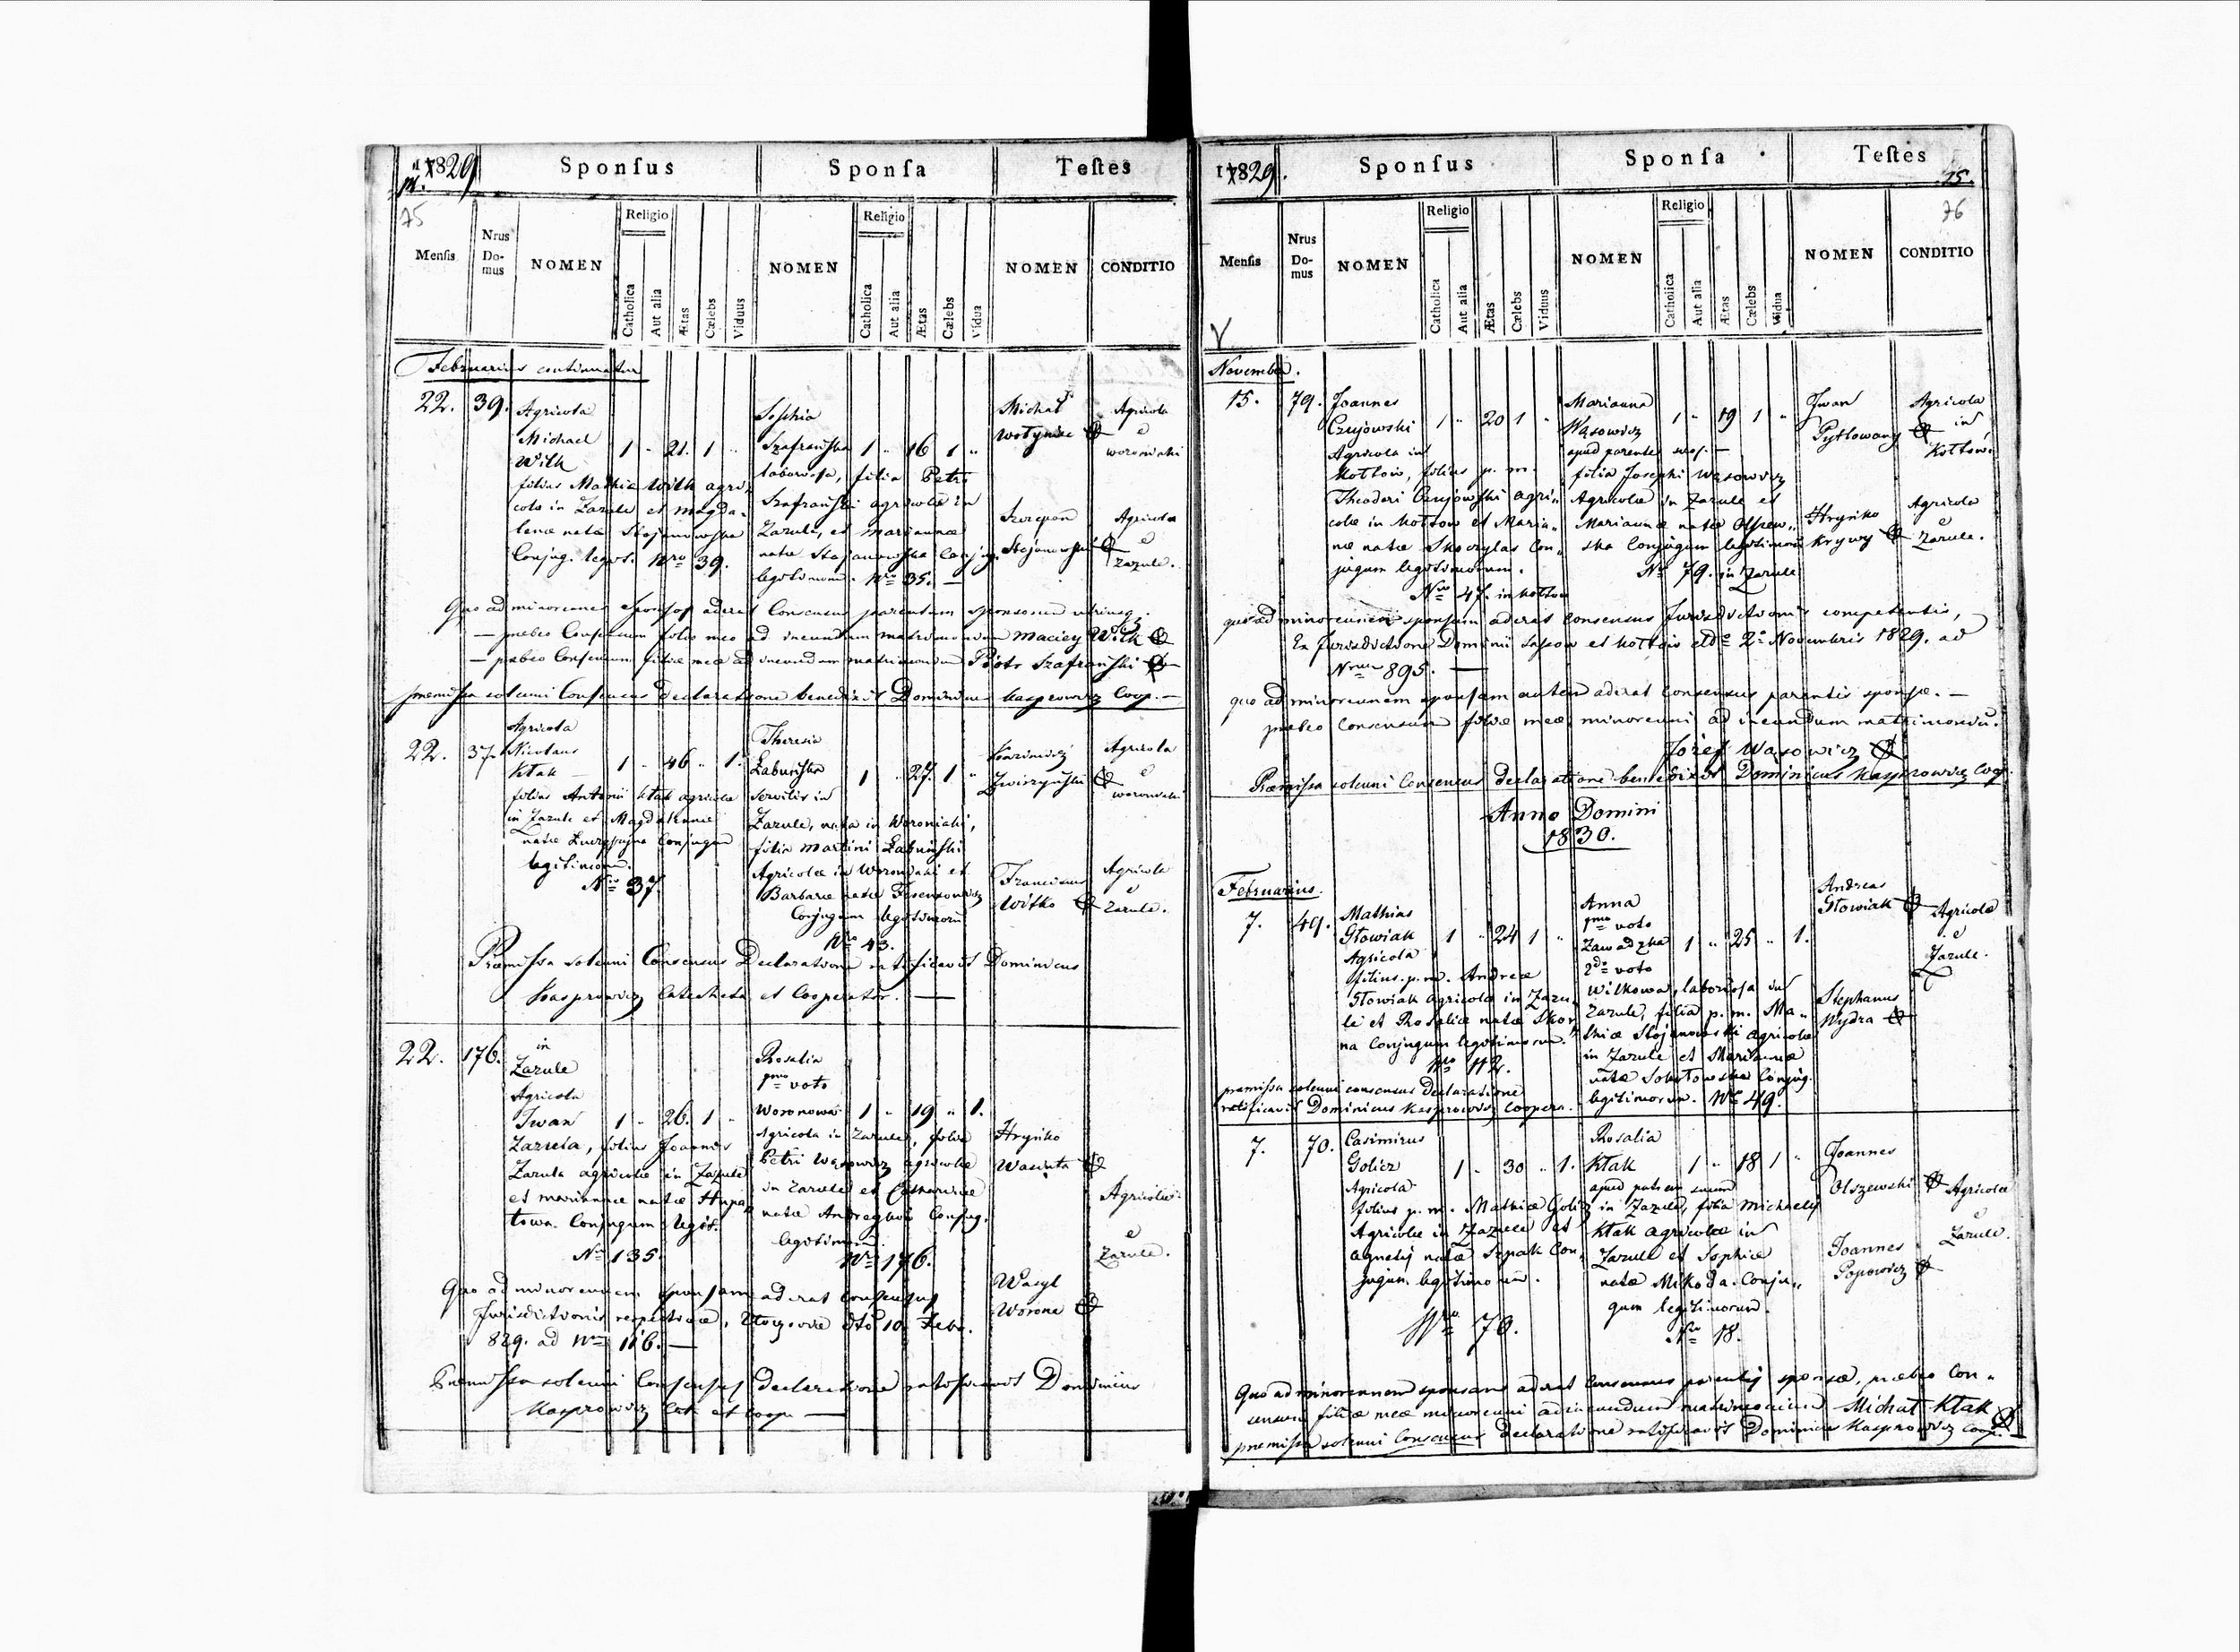 1829
Sponsus
Sponsa
Testes
75
Mensis
Nrus Do-mus
NOMEN
Religio
Catholica
Aut alia
Ætas
Cælebs
Viduus
NOMEN
Religio
Catholica
Aut alia
Ætas
Cælebs
Vidua
NOMEN
CONDITIO
Februarius continuatur
22. 39.
Agricola
Michael
Wilk
1 " 21. 1 "
filius Mathiæ Wilk agri-
colæ in Zazule et Magda-
lenæ natæ Stojanowska
Conjug. legit. Nro 39.
Sophia
Szafrańska 1 " 16 1 "
laboriosa, filia Petri
Szafrański agricolæ in
Zazule, et Mariannæ
natæ Stojanowska Conjug.
legitimorum. Nro 35. —
Michał
Wołyniec
Agricola
e
woroniaki
Szczepan
Stojanowski
Agricola
e
Zazule.
Quo ad minorennes sponsos aderat Consensus parentum sponsorum utriusq.
— præbeo Consensum filio meo ad ineundum matrimonium Maciey Wilk
— præbeo Consensum filiæ meæ ad ineundum matrimonium Piotr Szafrański
præmissa solenni Consensus declaratione benedixit Dominicus Kasprowicz Coop. —
22. 37.
Agricola
Nicolaus
Kłak —
1 " 46 " 1.
filius Antonii Kłak agricolæ
in Zazule et Magdalenæ
natæ Conjugum
legitimorum.
Nro 37.
Theresia
Łabuńska
1 " 27. 1 "
servilis in
Zazule, nata in Woroniaki,
filia Martini Łabuński
Agricolæ in Woroniaki et
Barbaræ natæ
Conjugum legitimorum
Nro 43.
Kazimierz
Zwirzyński
Agricola
e
woroniaki
Franciscus
Witko
Agricola
e
Zazule.
Præmissa solenni Consensus Declaratione ratificavit Dominicus
Kasprowicz Catecheta et Cooperator. —
22. 176.
in
Zazule
Agricola
Iwan 1 " 26. 1 "
Zazula, filius Joannis
Zazula agricolæ in Zazule
et mariannæ natæ
Conjugum legit.
Nro 135.
Rosalia
1mo voto
Woronowa 1 " 19 " 1.
Agricola in Zazule, filia
Petri Wąsowicz agricolæ
in Zazule et Catharinæ
natæ Conjug.
legitimorum.
Nro 176.
Hryńko
Wasiuta
Agricolæ
e
Zazule.
Wasyl
Worona
Quo ad minorennem sponsam aderat Consensus
Jurisdictionis respectivæ, Złoczoviæ dto 10 Febr.
829. ad Nrum 116. —
Præmissa solenni Consensus declaratione ratificavit Dominicus
Kasprowicz Cat. et Coop. —
1829.
Sponsus
Sponsa
Testes
15.
76
Mensis
Nrus Do-mus
NOMEN
Religio
Catholica
Aut alia
Ætas
Cælebs
Viduus
NOMEN
Religio
Catholica
Aut alia
Ætas
Cælebs
Vidua
NOMEN
CONDITIO
V
November.
15. 79.
Joannes
Czujowski 1 " 20 1 "
Agricola in
Kołtow, filius p. m.
Theodori Czujowski agri-
colæ in Kołtow et Maria-
næ natæ Skoczylas Con-
jugum legitimorum.
Nro 47. in Kołtow
Marianna
Wąsowicz 1 " 19 1 "
apud parentes suos. —
filia Josephi Wąsowicz
Agricolæ in Zazule et
Mariannæ natæ Olszew-
ska Conjugum legitimorum
Nro 79. in Zazule
Iwan
Pytlowany
Agricola
in
Kołtow
Hryńko
Krywy
Agricola
e
Zazule.
quo ad minorennem sponsum aderat consensus Jurisdictionis competentis,
Ex Jurisdictione Dominii Sassow et Kołtow dto 2a Novembris 1829. ad
Nrum 895. —
quo ad minorennem sponsam autem aderat consensus parentis sponsæ. —
præbeo Consensum filiæ meæ minorenni ad ineundum matrimoniu.
Jozef Wąsowicz
Præmissa solenni Consensus declaratione benedixit Dominicus Kasprowicz Coop.
Anno Domini
1830.
Februarius.
7. 49.
Mathias
Głowiak 1 " 24 1 "
Agricola
filius p. m. Andreæ
Głowiak agricolæ in Zazu-
le et Rosaliæ natæ Skor
na Conjugum legitimorum.
Nro 112.
Anna
1mo voto
Zawadzka 1 " 25 " 1.
2do voto
Wilkowa, laboriosa in
Zazule, filia p. m. Ma-
thiæ Stojanowski agricolæ
in Zazule et Mariannæ
natæ Sokołowska Conjug.
legitimorum. Nro 49.
Andreas
Głowiak
Agricolæ
e
Zazule.
Stephanus
Wydra
præmissa solenni consensus declaratione
ratificavit Dominicus Kasprowicz Coopera.
7. 70.
Casimirus
Golicz 1 " 30 " 1.
Agricola
filius p. m. Mathiæ Golicz
Agricolæ in Zazule et
Agnetis natæ Szpak Con-
jugum legitimorum.
Nro 70.
Rosalia
Kłak 1 " 18 1 "
apud patrem suum
in Zazule, filia Michaelis
Kłak agricolæ in
Zazule et Sophiæ
natæ Mikoda Conju-
gum legitimorum.
Nro 18.
Joannes
Olszewski
Agricolæ
e
Zazule.
Joannes
Popowicz
Quo ad minorennem sponsam aderat consensus parentis sponsæ, præbeo Con-
sensum filiæ meæ minorenni ad ineundum matrimonium Michał Kłak
præmissa solenni Consensus declaratione ratificavit Dominicus Kasprowicz Coop. —